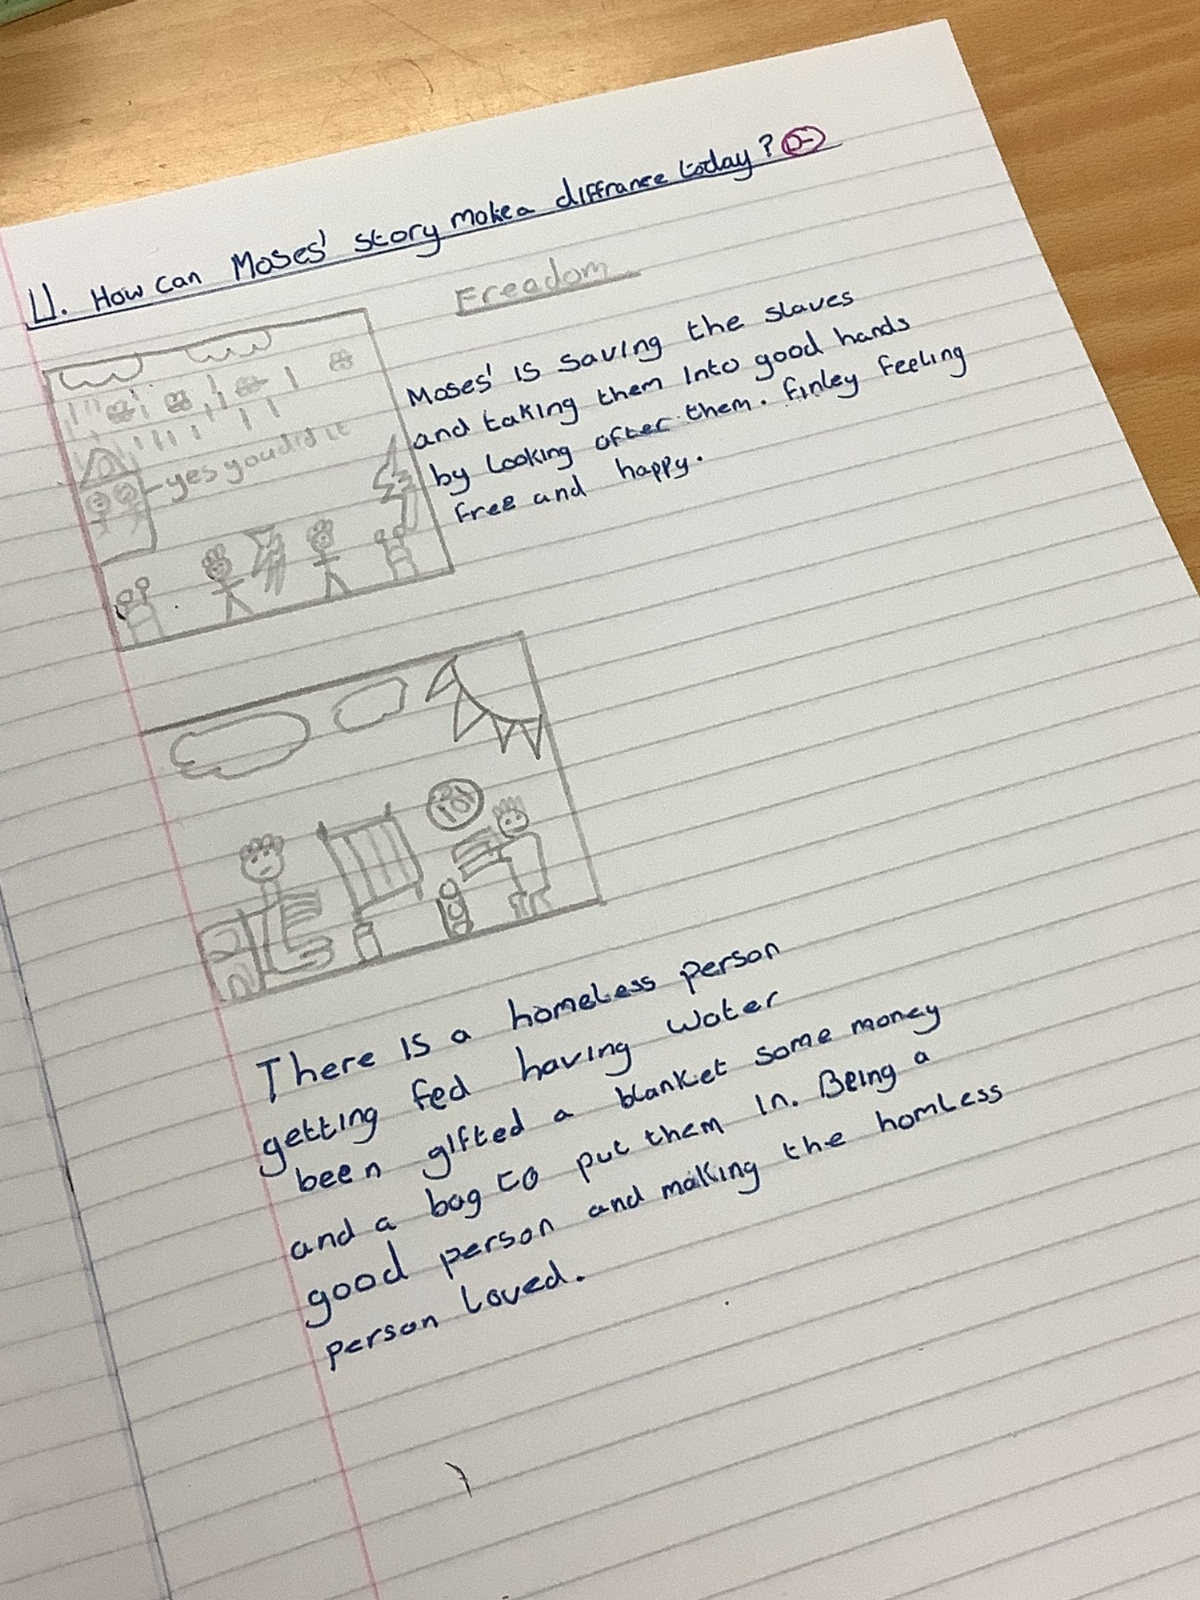 LI. How can Moses' story make a diffrance today?
Freadom
Moses' is saving the slaves
and taking them into good hands
by looking after them. finley feeling
free and happy.
yes you did it
There is a homeless person
getting fed having water
been gifted a blanket some money
and a bag to put them in. Being a
good person and making the homless
person loved.